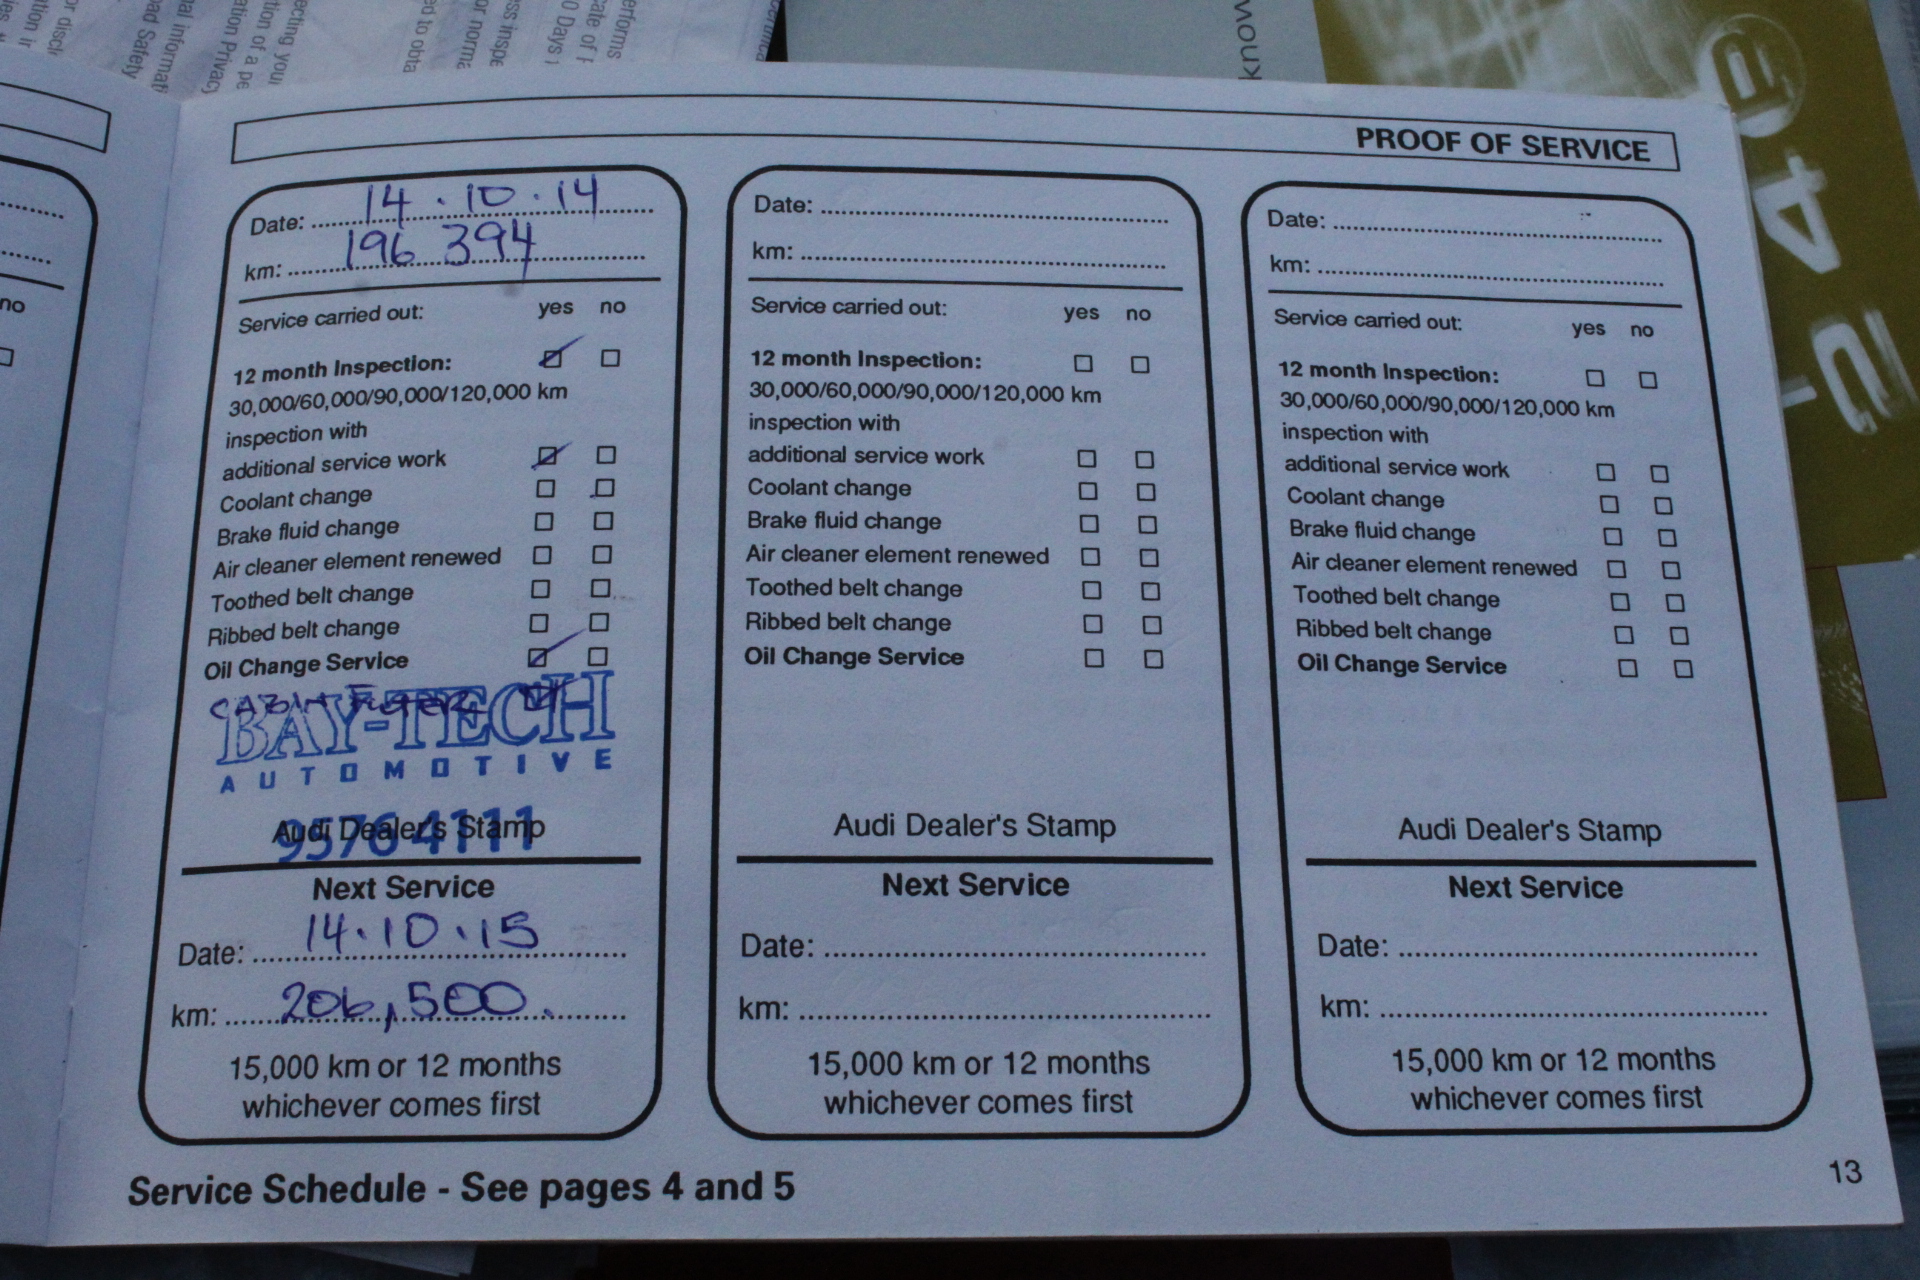 PROOF OF SERVICE
Date: 14.10.14
km: 196 394
Service carried out: yes no
12 month Inspection:
30,000/60,000/90,000/120,000 km
inspection with
additional service work
Coolant change
Brake fluid change
Air cleaner element renewed
Toothed belt change
Ribbed belt change
Oil Change Service
CABIN FILTER
BAY-TECH
AUTOMOTIVE
Audi Dealer's Stamp
9576 4111
Next Service
Date: 14.10.15
km: 206,500.
15,000 km or 12 months
whichever comes first
Date:
km:
Service carried out: yes no
12 month Inspection:
30,000/60,000/90,000/120,000 km
inspection with
additional service work
Coolant change
Brake fluid change
Air cleaner element renewed
Toothed belt change
Ribbed belt change
Oil Change Service
Audi Dealer's Stamp
Next Service
Date:
km:
15,000 km or 12 months
whichever comes first
Date:
km:
Service carried out: yes no
12 month Inspection:
30,000/60,000/90,000/120,000 km
inspection with
additional service work
Coolant change
Brake fluid change
Air cleaner element renewed
Toothed belt change
Ribbed belt change
Oil Change Service
Audi Dealer's Stamp
Next Service
Date:
km:
15,000 km or 12 months
whichever comes first
Service Schedule - See pages 4 and 5
13
no
know